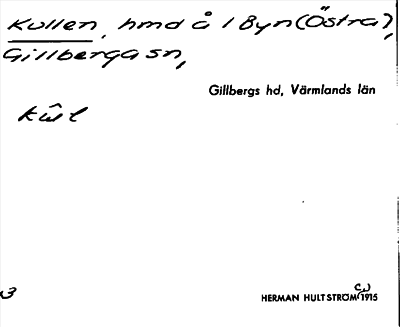 Kullen, hmd å 1 Byn (Östra),
Gillberga sn,
Gillbergs hd, Värmlands län
kŵl
3
HERMAN HULTSTRÖM 1915